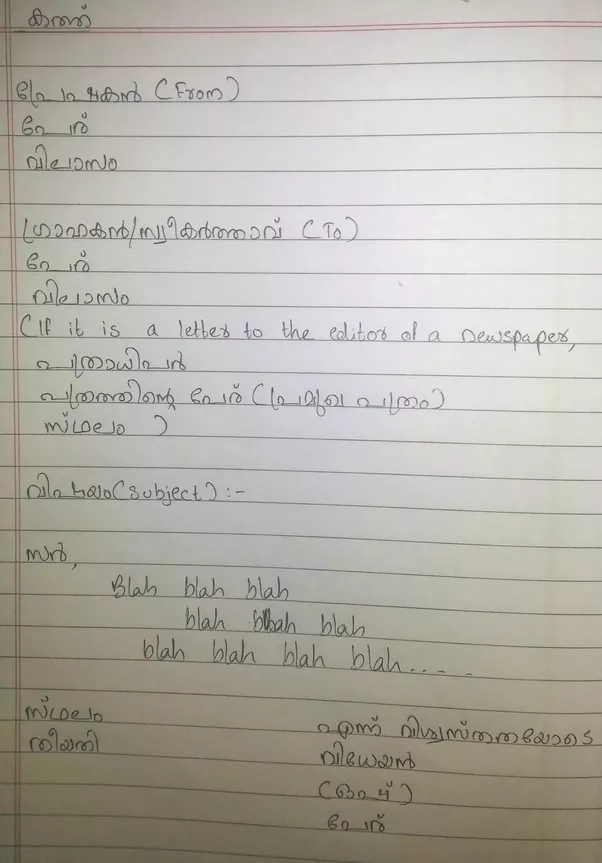 കത്ത്
പ്രേഷകൻ (From)
പേര്
വിലാസം
ഗ്രാഹകൻ/സ്വീകർത്താവ് (To)
പേര്
വിലാസം
(If it is a letter to the editor of a newspaper,
പത്രാധിപർ
പത്രത്തിന്റെ പേര് (പ്രമുഖ പത്രം)
സ്ഥലം )
വിഷയം (Subject) :-
സർ,
Blah blah blah
blah blah blah
blah blah blah blah.....
സ്ഥലം
തീയതി
എന്ന് വിശ്വസ്തതയോടെ
വിധേയൻ
(ഒപ്പ്)
പേര്